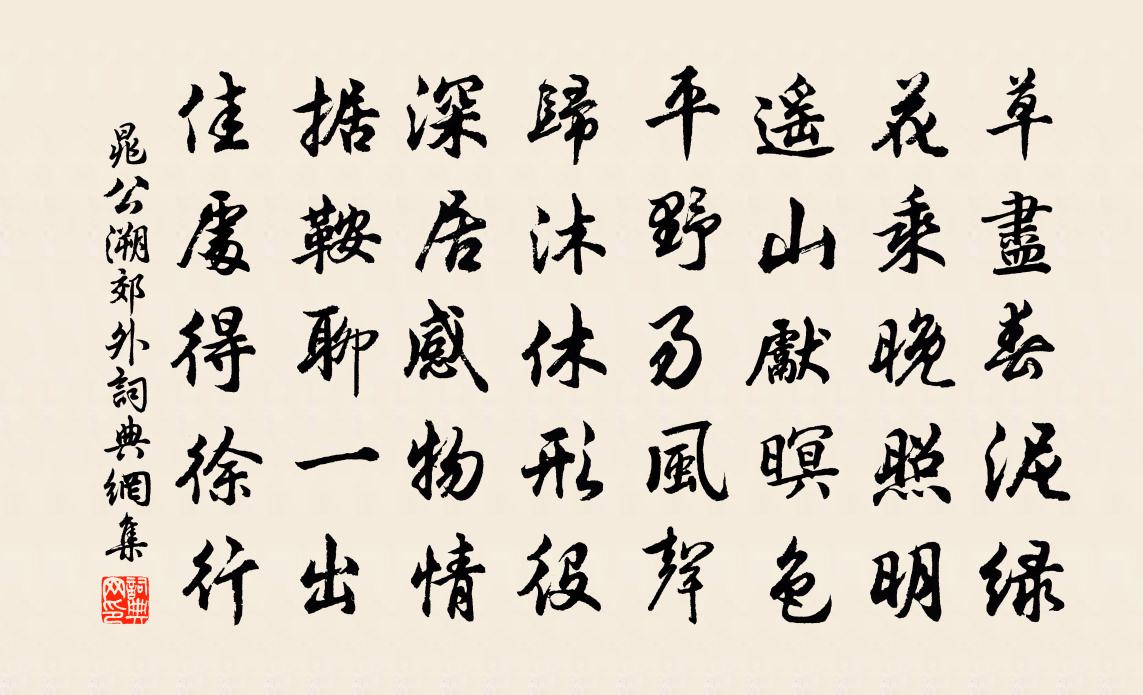 草盡春泥緑
花乘晚照明
遥山獻暝色
平野易風聲
歸沐休形役
深居感物情
据鞍聊一出
佳處得徐行
晁公溯郊外詞典網集
詞典
网印